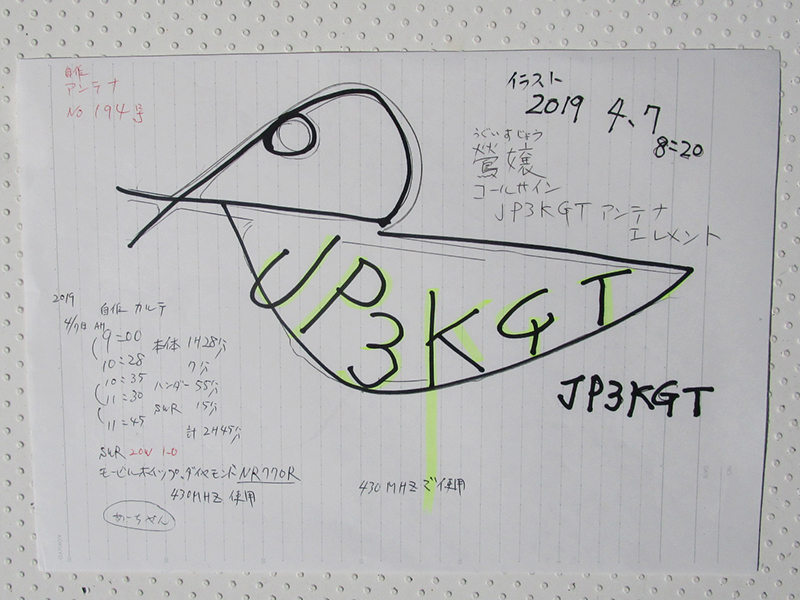 自作
アンテナ
No 194号
イラスト
2019 4、7
8=20
うぐいすじょう
鶯嬢
コールサイン
JP3KGT アンテナ
エレメント
JP3KGT
JP3KGT
2019
4/7日 AM
自作 カルテ
9=00 本体 1H28分
10=28 7分
10=35 ハンダー 55分
11=30 SWR 15分
11=45 計 2H45分
SWR 20W 1.0
モービルホイップ、ダイヤモンド NR770R
430MHZ 使用
430MHZで使用